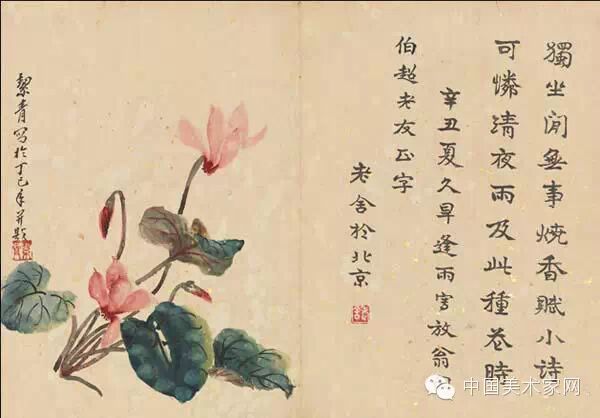 獨坐閒無事燒香賦小詩
可憐清夜雨及此種花時
辛丑夏久旱逢雨寫放翁句
伯超老友正字
老舍於北京
老舍
絜青写於丁巳年并題
中国美术家网